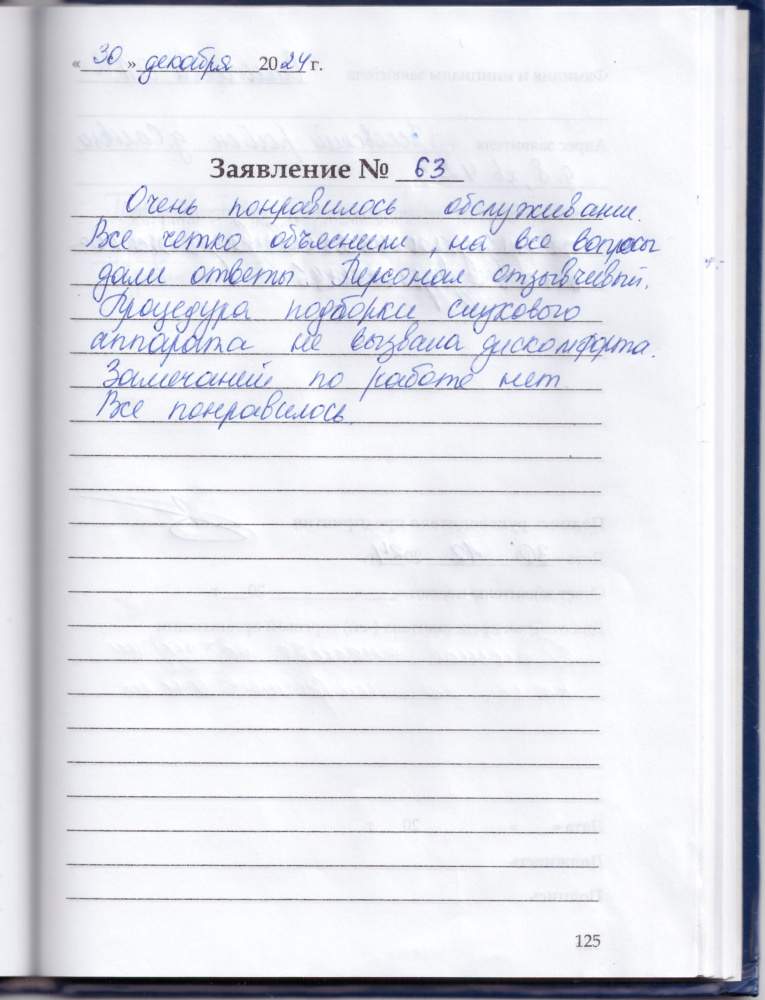 « 30 » декабря 2024 г.
Заявление № 63
Очень понравилось обслуживание.
Все четко объяснили, на все вопросы
дали ответы. Персонал отзывчивый.
Процедура подборки слухового
аппарата не вызвала дискомфорта.
Замечаний по работе нет.
Все понравилось.
125